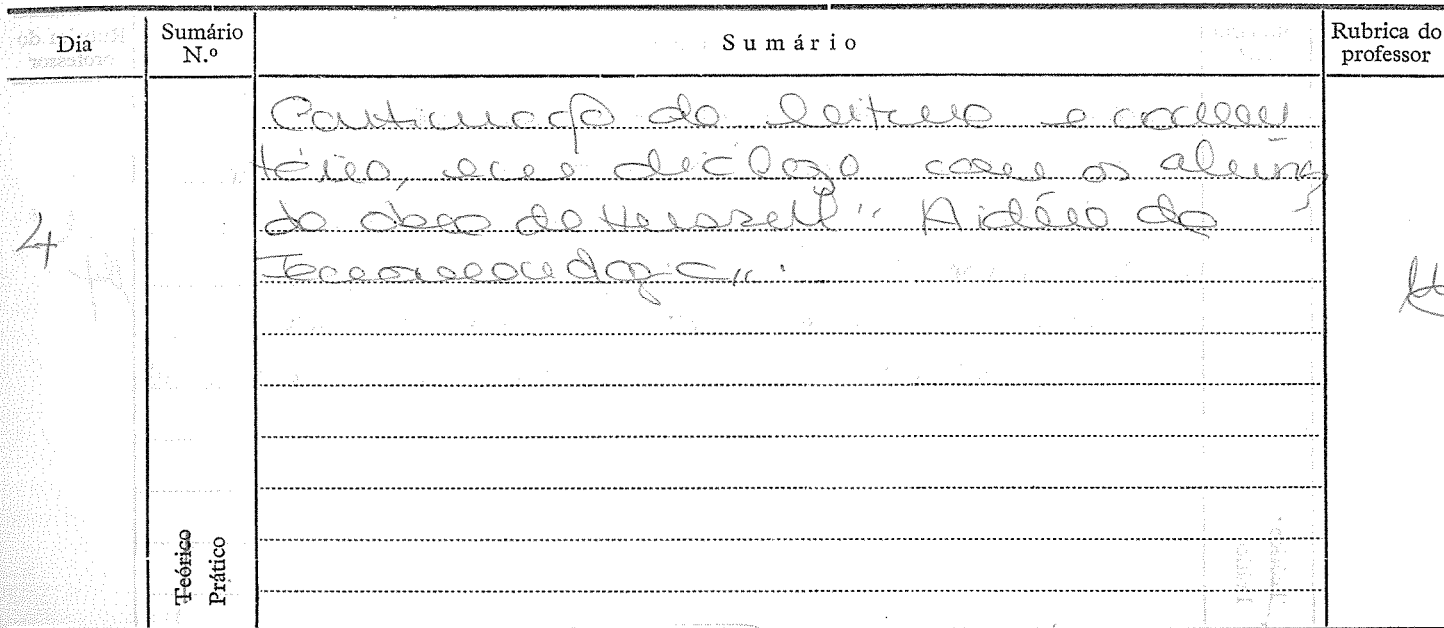 Dia
Sumário N.º
Sumário
Rubrica do professor
4
Continuação da leitura e comen
tário, em diálogo com os alunos,
da obra de Husserl "A ideia da
Fenomenologia".
Teórico
Prático